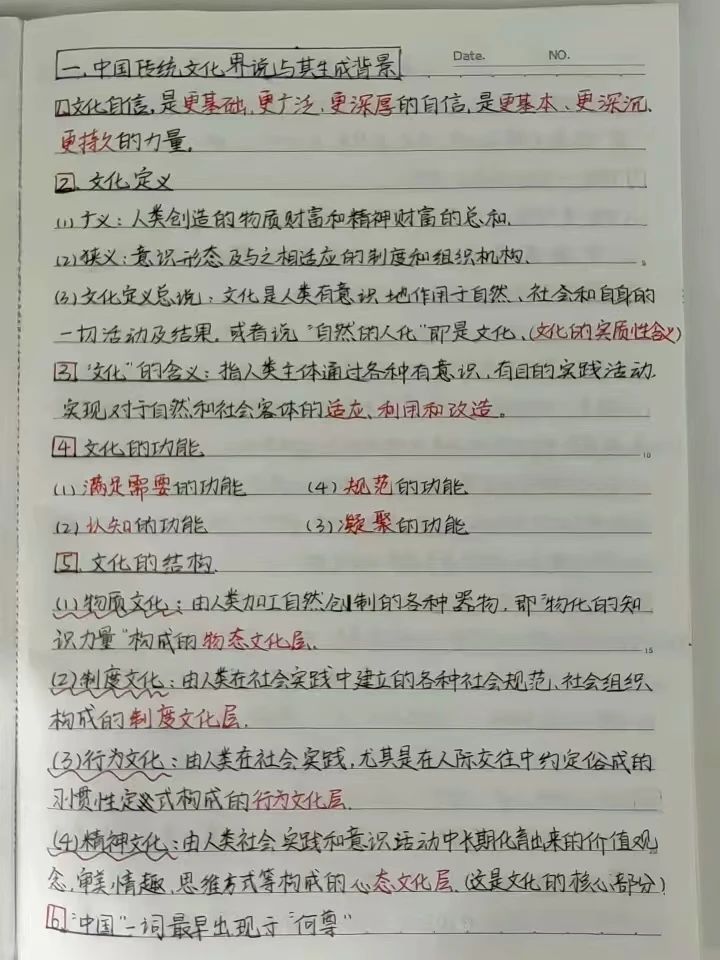 Date. NO.
一.中国传统文化界说与其生成背景
1.文化自信,是更基础、更广泛、更深厚的自信,是更基本、更深沉、
更持久的力量.
2.文化定义
(1)广义:人类创造的物质财富和精神财富的总和.
(2)狭义:意识形态及与之相适应的制度和组织机构.
(3)文化定义总说:文化是人类有意识地作用于自然、社会和自身的
一切活动及结果,或者说“自然的人化”即是文化.(文化的实质性含义)
3.“文化”的含义:指人类主体通过各种有意识,有目的实践活动.
实现对于自然和社会客体的适应、利用和改造。
10
4.文化的功能
(1)满足需要的功能 (4)规范的功能
(2)认知的功能 (3)凝聚的功能
5.文化的结构.
(1)物质文化:由人类加工自然创制的各种器物,即“物化的知
识力量”构成的物态文化层.
15
(2)制度文化:由人类在社会实践中建立的各种社会规范、社会组织、
构成的制度文化层.
(3)行为文化:由人类在社会实践,尤其是在人际交往中约定俗成的
习惯性定义式构成的行为文化层.
(4)精神文化:由人类社会实践和意识活动中长期化育出来的价值观
念,审美情趣,思维方式等构成的心态文化层.(这是文化的核心部分)
6.“中国”一词最早出现于“何尊”